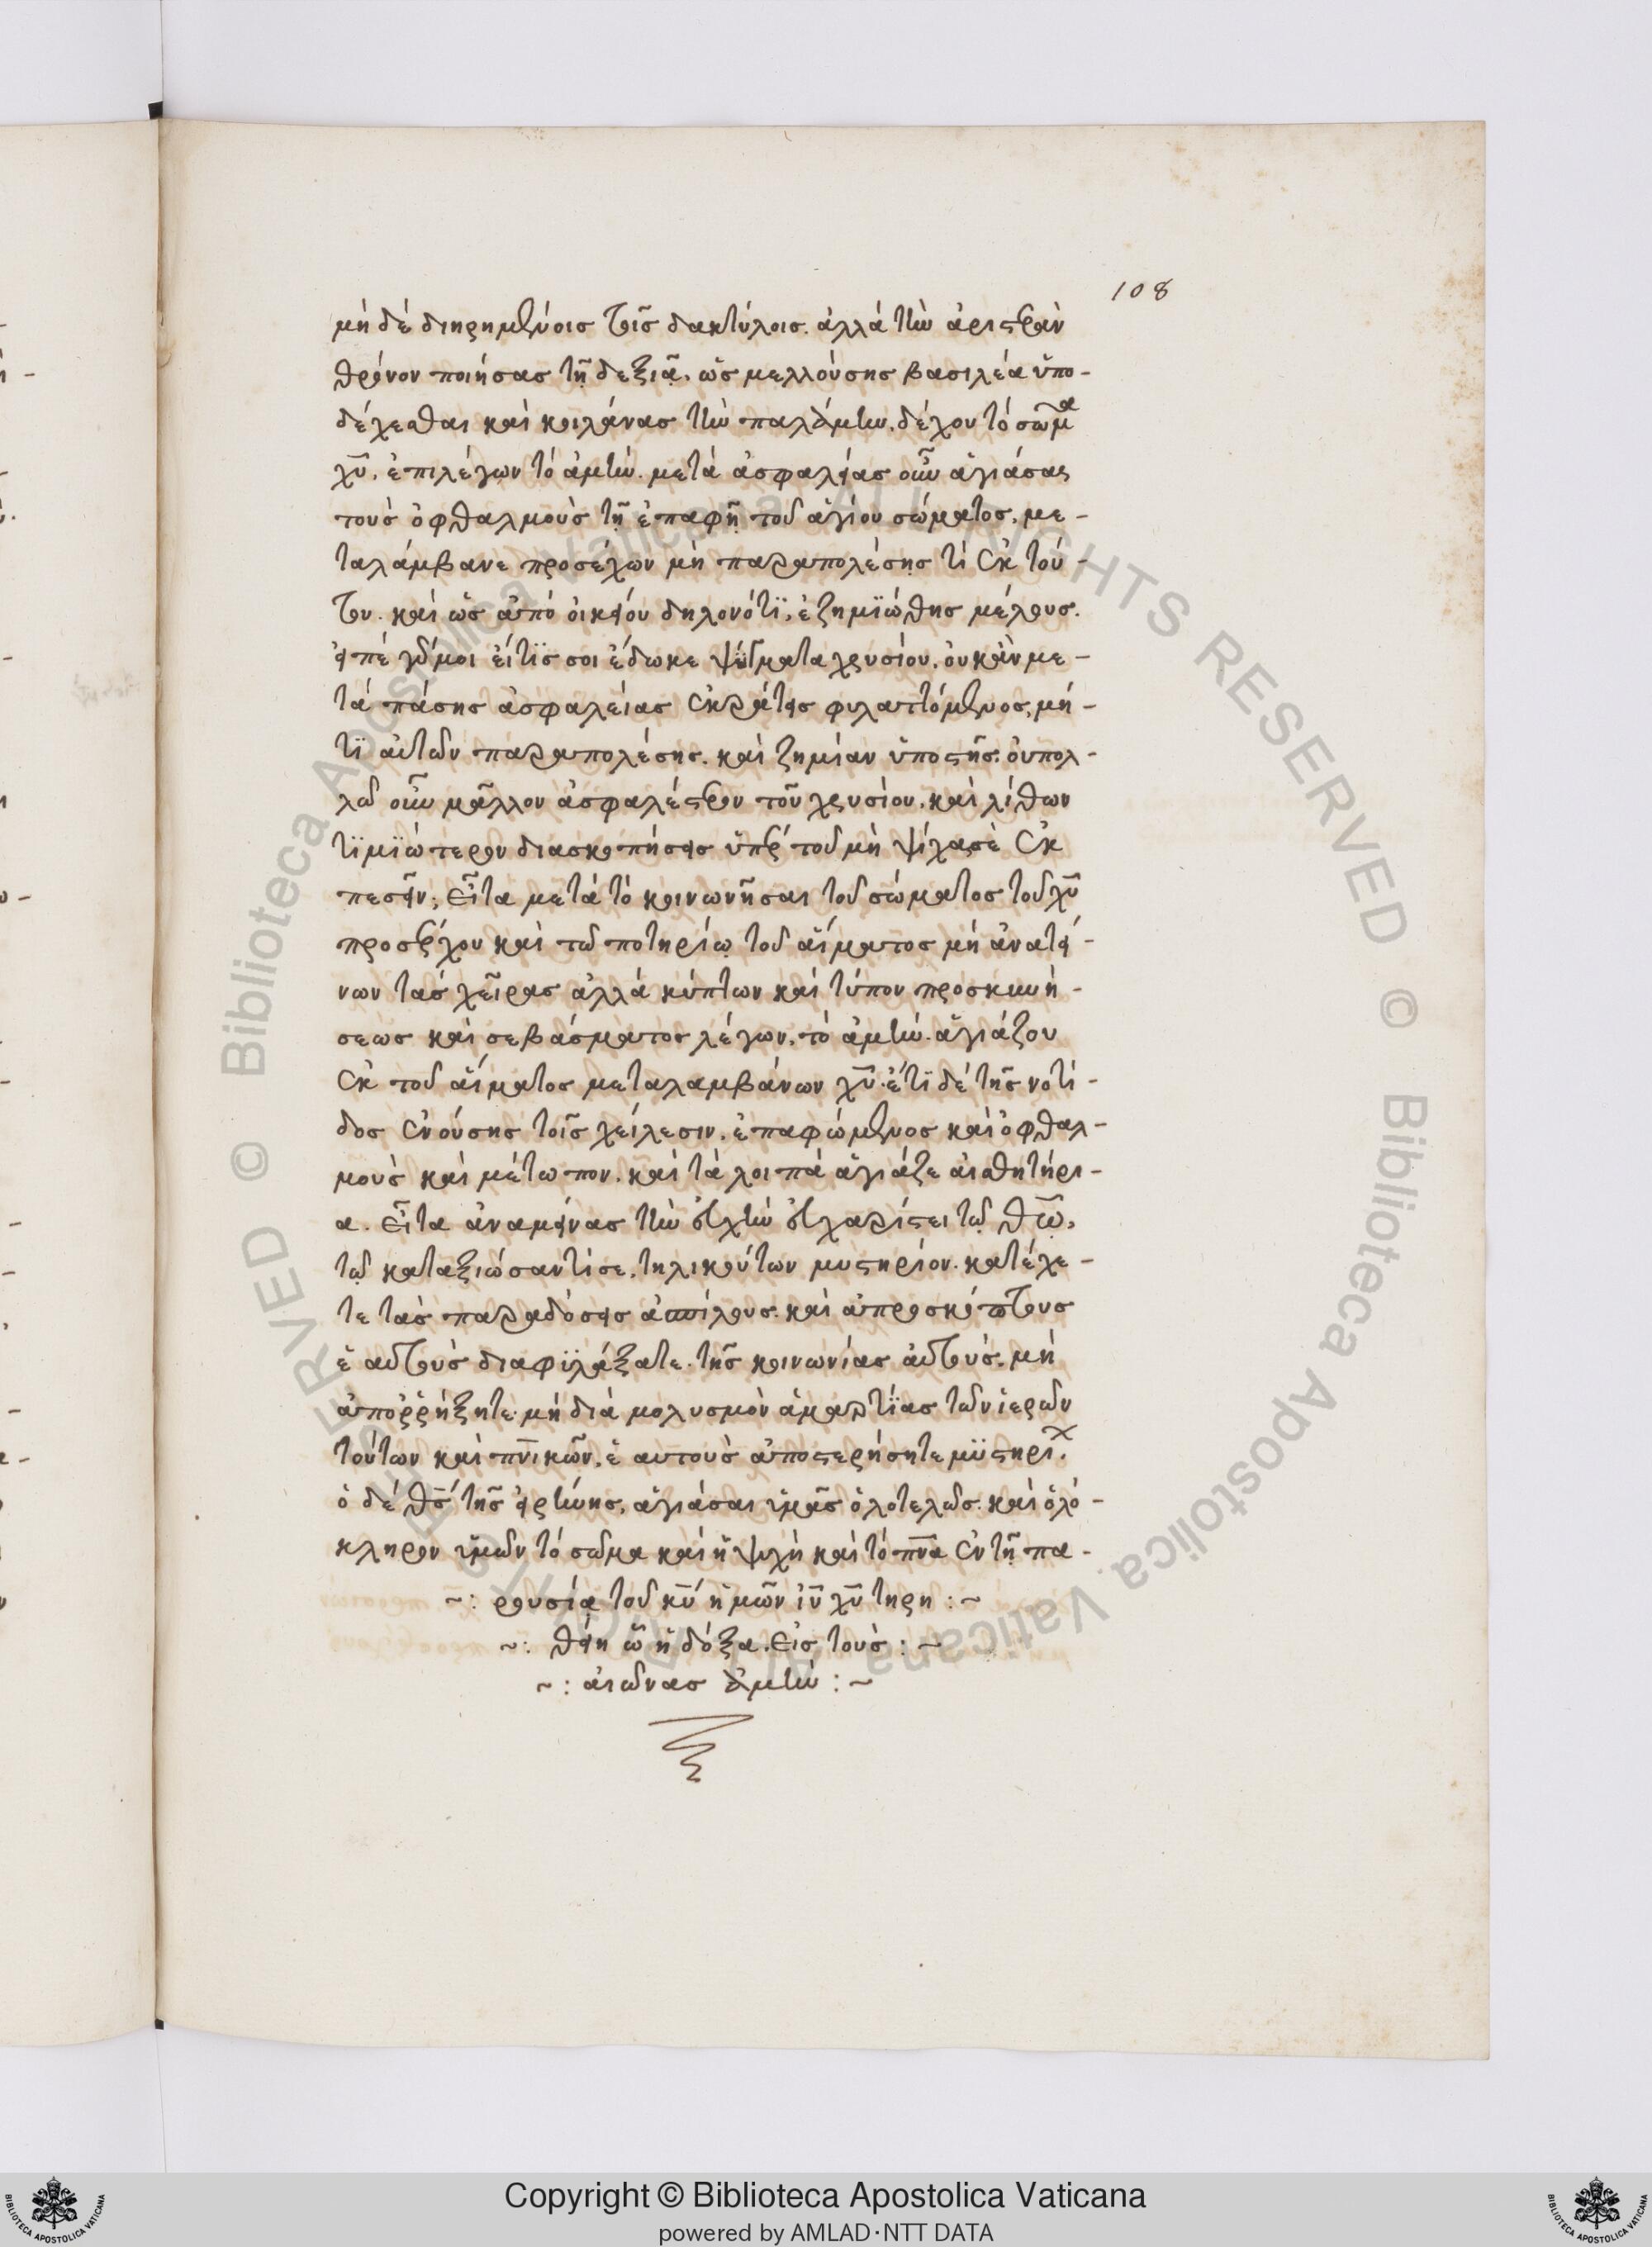 108
μὴ δέ διηρημένοις τοῖς δακτύλοις. ἀλλά τὴν ἀριστερὰν
θρόνον ποιήσας τῇ δεξιᾷ. ὡς μελλούσης βασιλέα ὑπο-
δέχεσθαι καὶ κοιλάνας τὴν παλάμην. δέχου τό σῶμα
χῦ. ἐπιλέγων τό ἀμήν. μετά ἀσφαλείας οὖν ἁγιάσας
τοὺς ὀφθαλμοὺς τῇ ἐπαφῇ τοῦ ἁγίου σώματος. με-
ταλάμβανε προσέχων μὴ παραπολέσῃς τί ἐκ τού-
του. καὶ ὡς ἀπό οἰκείου δηλονότϊ, ἐζημϊώθης μέλους.
εἰπέ γάρ μοι εἴτϊς σοι ἔδωκε ψήγματα χρυσίου. οὐκἂν με-
τά πάσης ἀσφαλείας ἐκράτεις φυλαττόμενος, μή-
τϊ αὐτῶν παραπολέσης. καὶ ζημίαν ὑποστῆς. οὐπολ-
λῶ οὖν μᾶλλον ἀσφαλέστερον τοῦ χρυσίου. καὶ λίθων
τϊμϊώτερον διασκοπήσεις ὑπέρ τοῦ μὴ ψίχασὲ ἐκ
πεσεῖν; Εἶτα μετά τό κοινωνῆσαι τοῦ σώματος τοῦ χῦ
προσέρχου καὶ τῶ ποτηρίῳ τοῦ αἵματος μή ἀνατεί-
νων τάς χεῖρας ἀλλά κύπτων καὶ τύπον προσκυνή-
σεως καὶ σεβάσματος λέγων. τὸ ἀμήν. ἁγιάζου
ἐκ τοῦ αἵματος μεταλαμβάνων χῦ. ἔτϊ δέ τῆς νοτί-
δος ἐνούσης τοῖς χείλεσιν. ἐπαφώμενος καὶ ὀφθαλ-
μοὺς καὶ μέτωπον. καὶ τὰ λοιπά ἁγιάζε αἰσθητήρι-
α. Εἶτα ἀναμείνας τὴν εὐχήν εὐχαρίστει τῷ θῶ,
τῷ καταξιώσαντί σε, τηλικούτων μυστηρίον. κατέχε-
τε τὰς παραδόσεις ἀσπίλους. καὶ ἀπροσκόπτους
ἑ αυτοὺς διαφϋλάξατε. τῆς κοινωνίας αὐτοὺς. μὴ
ἀποῤῥήξητε. μὴ διά μολυσμὸν ἁμαρτϊας τῶν ἱερῶν
τούτων καὶ πνικῶν. ἑ αυτοὺς ἀποστερήσητε μϋστηρί.
ὁ δέ θς τῆς εἰρήνης, ἁγιάσαι ὑμᾶς ὁλοτελῶς. καὶ ὁλό-
κληρον ὑμῶν τό σῶμα καὶ ἡ ψυχή καὶ τό πνα ἐν τῇ πα-
~: ρουσίᾳ τοῦ κῦ ἡμῶν ἰῦ χῦ τηρη :~
~: θείη ᾧ ἡ δόξα. Εἰς τοὺς :~
~: αἰῶνας ἀμήν :~